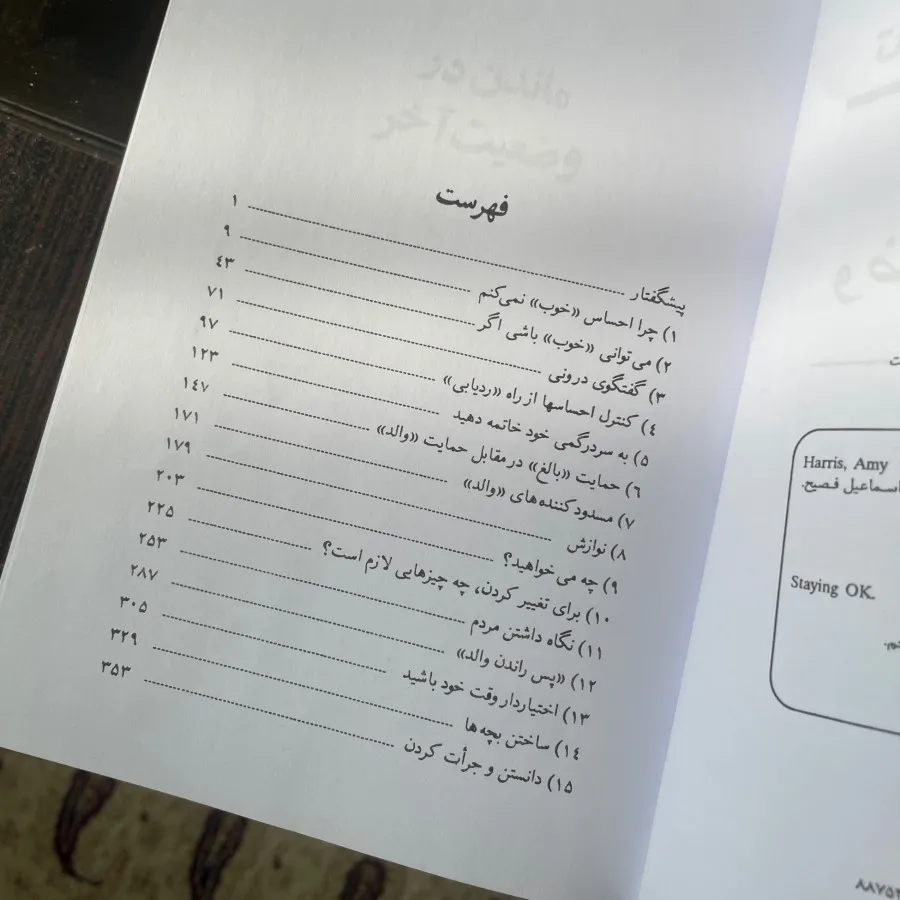 فهرست
پیشگفتار ۱
۱) چرا احساس «خوب» نمی‌کنم ۹
۲) می‌توانی «خوب» باشی اگر ۴۳
۳) گفتگوی درونی ۷۱
۴) کنترل احساسها از راه «ردیابی» ۹۷
۵) به سردرگمی خود خاتمه دهید ۱۲۳
۶) حمایت «بالغ» در مقابل حمایت «والد» ۱۴۷
۷) مسدودکننده‌های «والد» ۱۷۱
۸) نوازش ۱۷۹
۹) چه می‌خواهید؟ ۲۰۳
۱۰) برای تغییر کردن، چه چیزهایی لازم است؟ ۲۲۵
۱۱) نگاه داشتن مردم ۲۵۳
۱۲) «پس راندن والد» ۲۸۷
۱۳) اختیاردار وقت خود باشید ۳۰۵
۱۴) ساختن بچه‌ها ۳۲۹
۱۵) دانستن و جرأت کردن ۳۵۳
Harris, Amy
اسماعیل فصیح.
Staying OK.